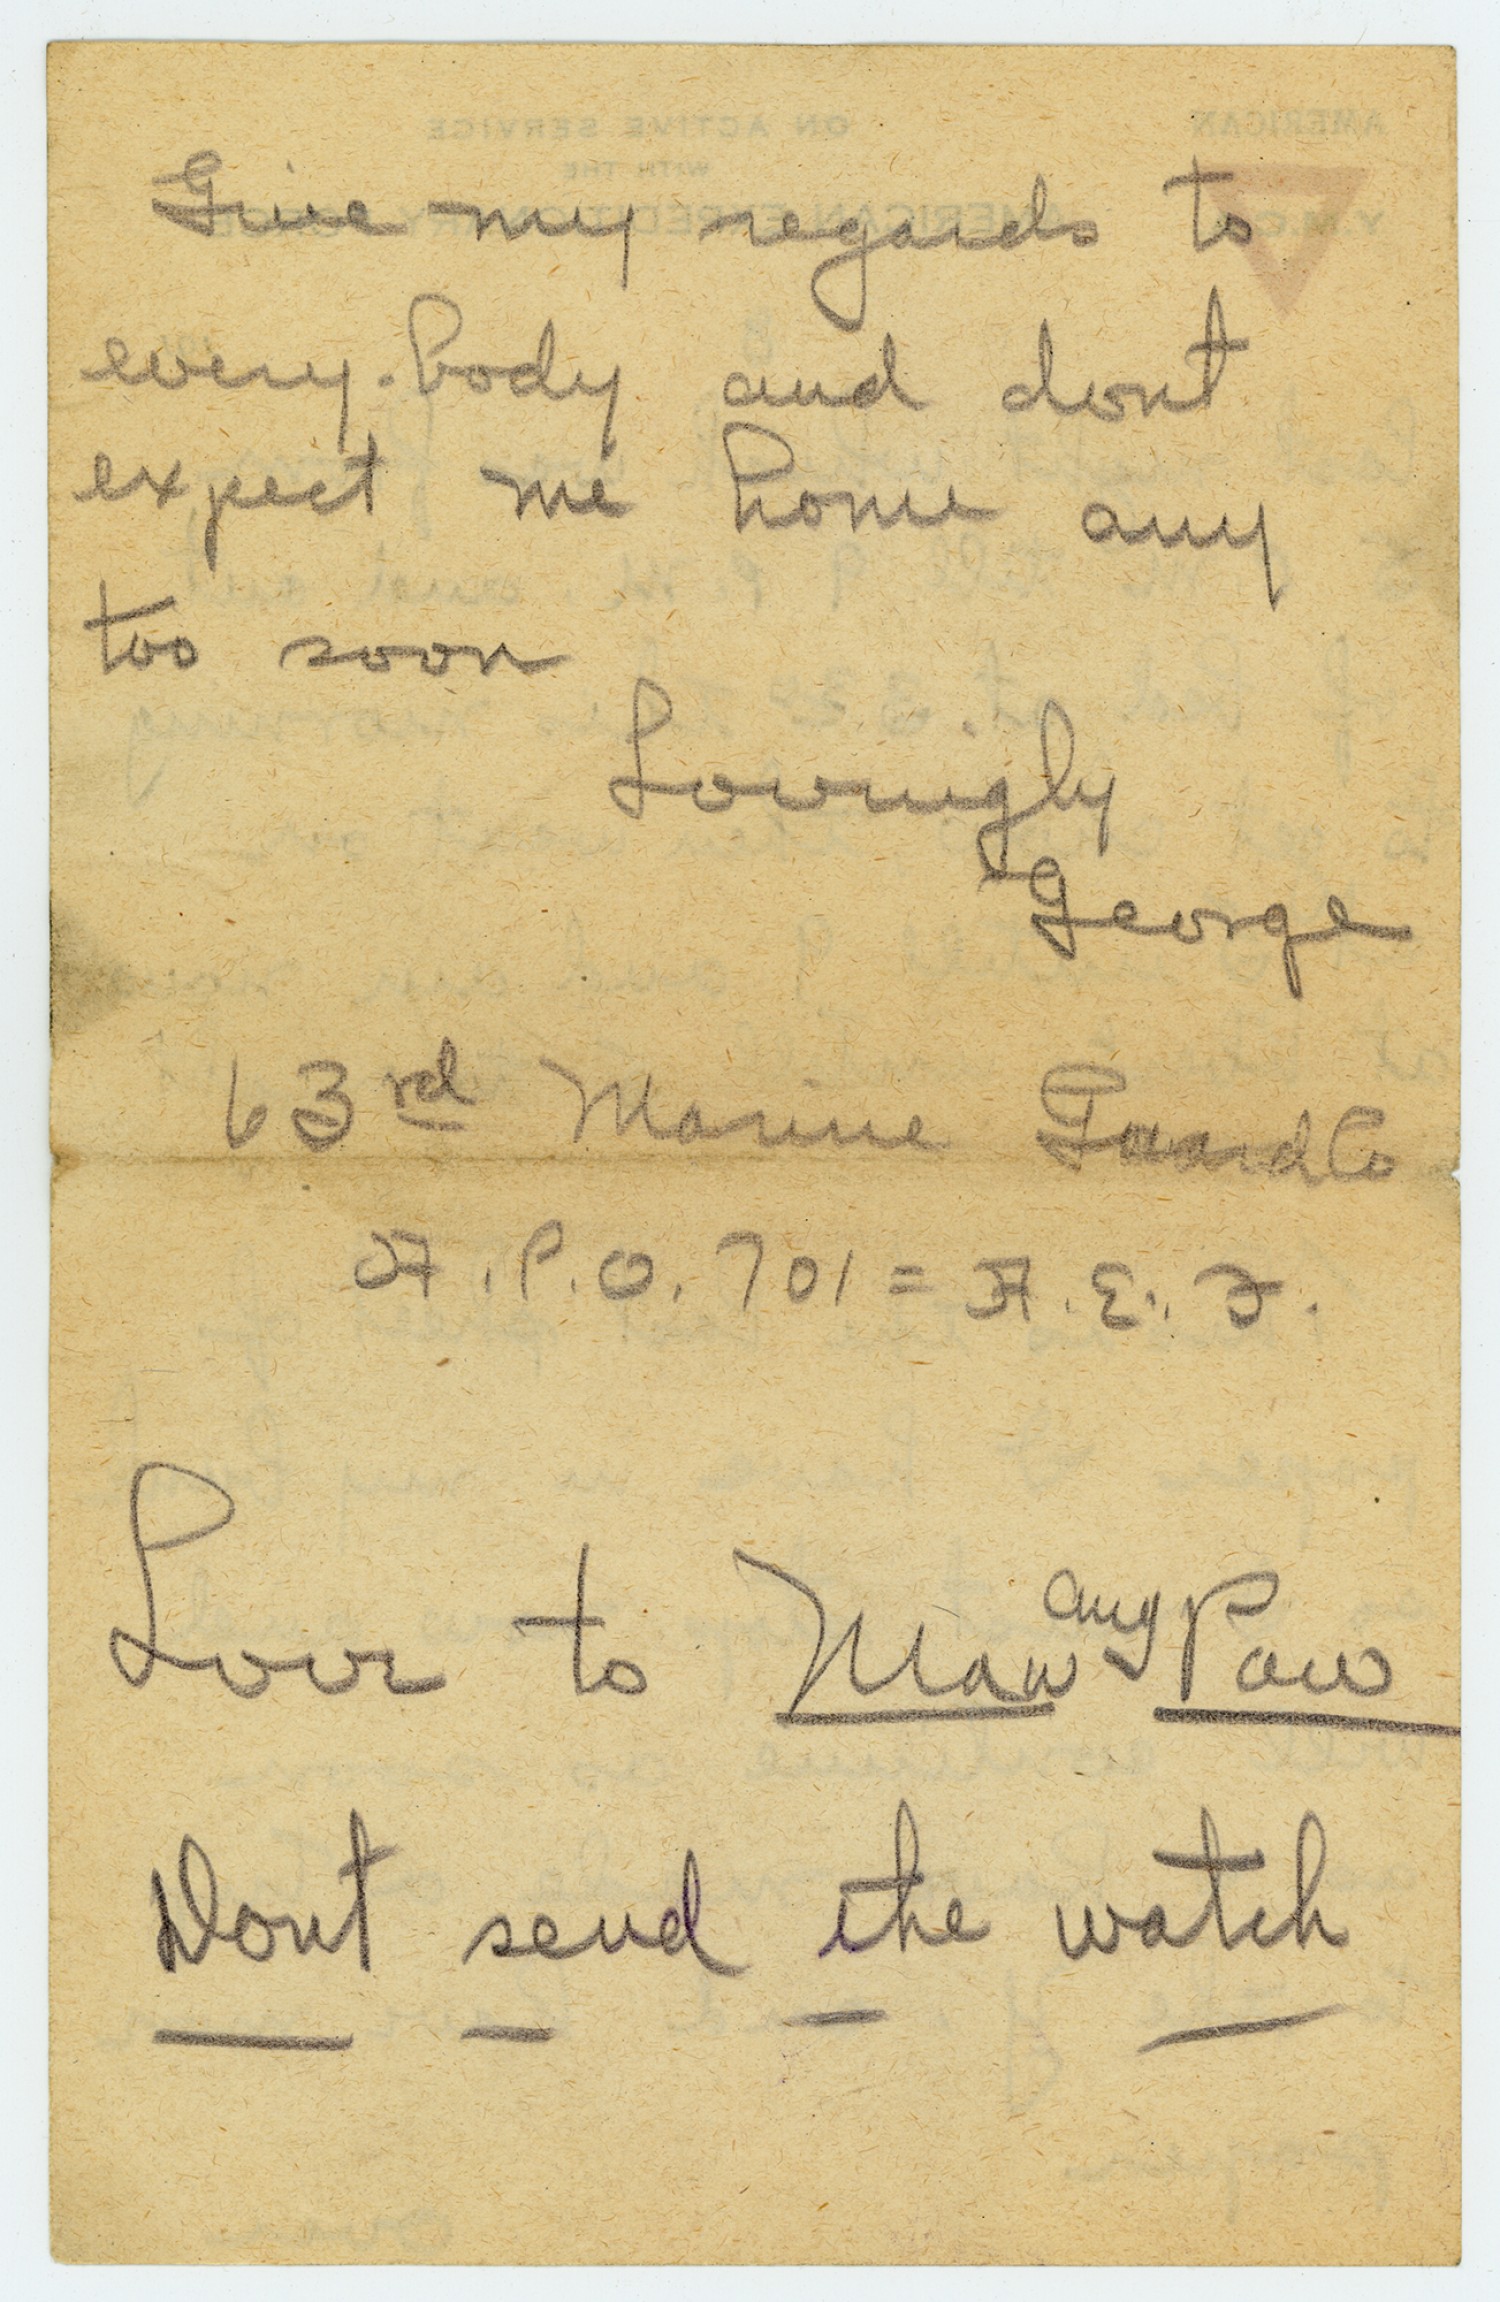 Give my regards to
every-body and dont
expect me home any
too soon
Lovingly
George
63rd Marine Guard Co
A.P.O. 701 = A.E.F.
Love to Maw and Paw
Dont send the watch